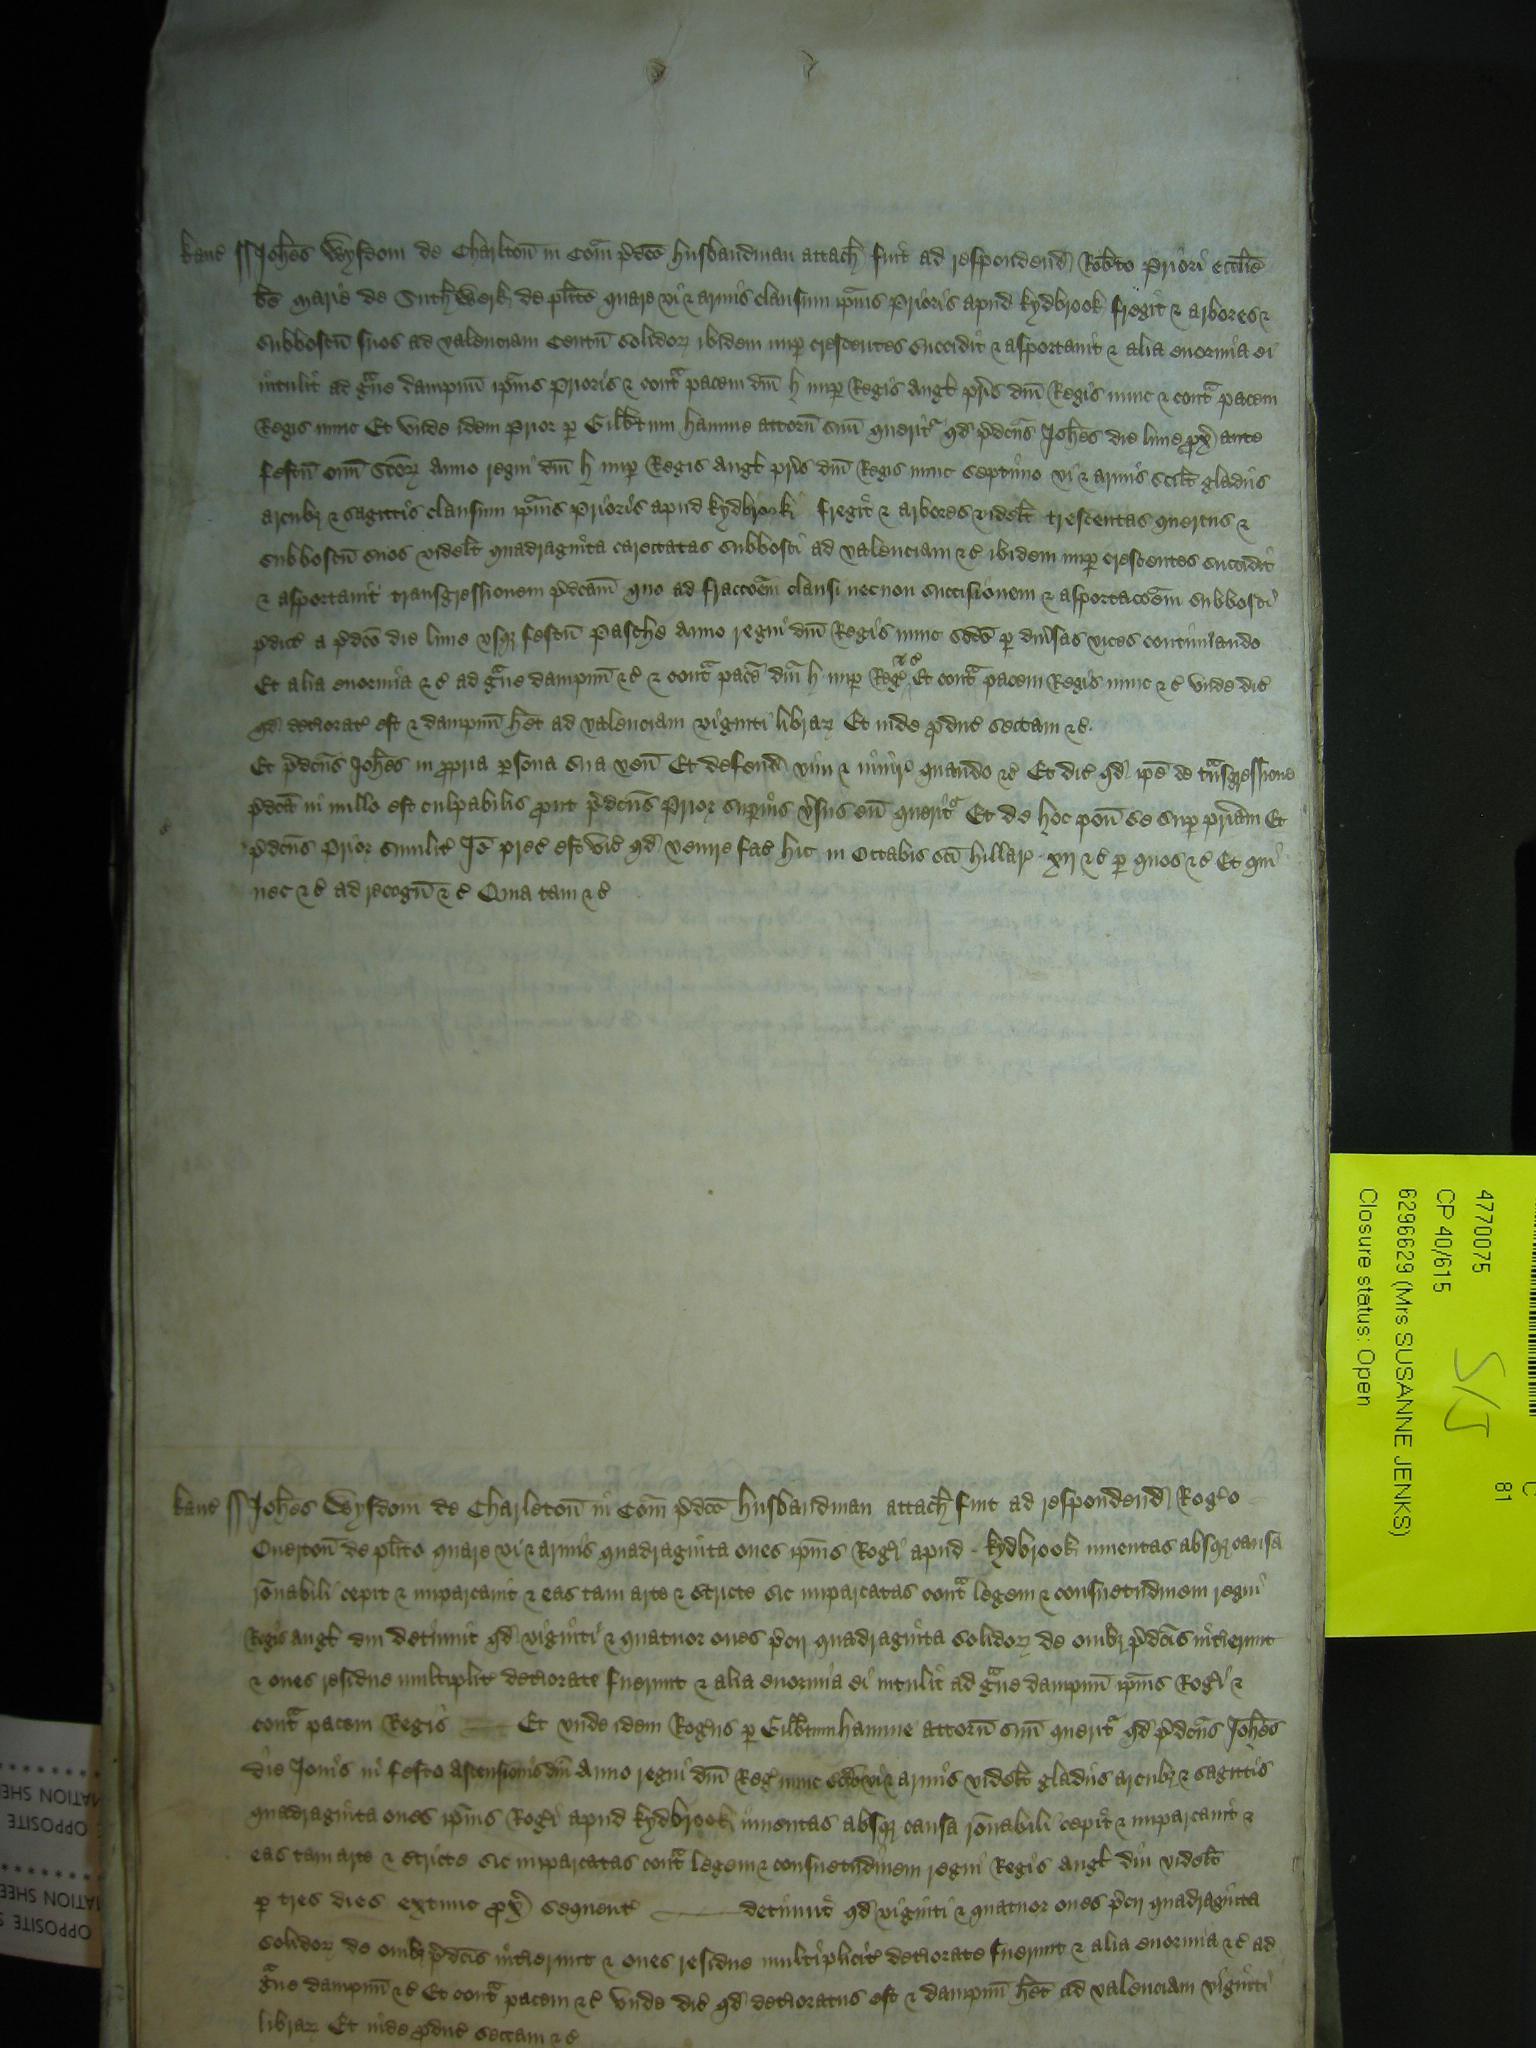 Kanc ss Joh̄es Wysdom de Charlton̄ in Com̄ p̄dc̄o husbandman attach̄ fuit ad respondend̄ Rob̄to Priori ecclīe
b̄e Marie de Suthwerk de pl̄ito quare vi & armis clausum ip̄ius Prioris apud Kydbrook fregit & arbores &
subboscū suos ad valenciam Centū solidoꝝ ibidem nup̱ crescentes succidit & asportauit & alia enormia ei
intulit ad gᵃue dampnū ip̄ius Prioris & contᵃ pacem dn̄i H nup̱ Regis Angl̄ pr̄is dn̄i Regis nunc & contᵃ pacem
Regis nunc Et vnde idem Prior p̱ Gilb̄tum Hamme attorn̄ suū queritᵘʳ qd̄ p̄dc̄us Joh̄es die lune ꝓx̄ ante
festū om̄i Sc̄oꝝ anno regni dn̄i H nup̱ Regis Angl̄ pr̄is dn̄i Regis nunc septimo vi & armis scil̄t gladiis
arcubꝫ & sagittis clausum ip̄ius Prioris apud Kydbrook fregit & arbores videl̄t trescentas quercus &
subboscū suos videl̄t quadraginta carectatas subbosci ad valenciam &c̄ ibidem nup̱ crescentes succidit
& asportauit transgressionem p̄dc̄am quo ad fracc̄oem clausi necnon succisionem & asportac̄oem subbosci
p̄dict̄ a p̄dc̄o die lune vsqꝫ festū Pasche anno regni dn̄i Regis nunc sc̄do p̱ diūsas vices continuando
Et alia enormia &c̄ ad gᵃue dampnū &c̄ & contᵃ pacē dn̄i H nup̱ Reḡ &c̄ Et contᵃ pacem Regis nunc &c̄ vnde dic̄
qd̄ deteriorat̄ est & dampnū h̄et ad valenciam viginti libraꝝ Et inde ꝓduc̄ sectam &c̄.
Et p̄dc̄us Joh̄es in ꝓpria p̱sona sua ven̄ Et defend̄ vim & iniur̄ quando &c̄ Et dic̄ qd̄ ip̄e de tᵃnsgressione
p̄dc̄a in nullo est culpabilis prout p̄dc̄us Prior sup̱ius v̄sus eū queritᵘʳ Et de hoc pon̄ se sup̱ pr̄iam Et
p̄dc̄us Prior similit̄ Iō prec̄ est vic̄ qd̄ venire fac̄ hic in Octabis sc̄i Hillar̄ xij &c̄ p̱ quos &c̄ Et qui
nec &c̄ ad recogn̄ &c̄ Quia tam &c̄
Kanc ss Joh̄es Wysdom de Charleton̄ in Com̄ p̄dc̄o husbandman attach̄ fuit ad respondend̄ Roḡo
Ouerton̄ de pl̄ito quare vi & armis quadraginta oues ip̄ius Roḡi apud Kydbrook inuentas absqꝫ causa
rōnabili cepit & imparcauit & eas tam arte & stricte sic imparcatas contᵃ legem & consuetudinem regni
Regis Angl̄ diu detinuit qd̄ viginti & quatuor oues p̄cij quadraginta solidoꝝ de om̄ibꝫ p̄dc̄is interierunt
& oues residue multiplicit̄ deteriorate fuerunt & alia enormia ei intulit ad gᵃue dampnū ip̄ius Roḡi &
contᵃ pacem Regis Et vnde idem Roḡus p̱ Gilb̄tum Hamme attorn̄ suū queritᵘʳ qd̄ p̄dc̄us Joh̄es
die Jouis in festo Ascensionis dn̄i Anno regni dn̄i Reḡ nunc sc̄do vi & armis videl̄t gladiis arcubꝫ & sagittis
quadraginta oues ip̄ius Roḡi apud Kydbrook inuentas absqꝫ causa rōnabili cepit & imparcauit &
eas tam arte & stricte sic imparcatas contᵃ legem & consuetudinem regni Regis Angl̄ diu videl̄t
p̱ tres dies extunc ꝓx̄ sequent̄ detinuit qd̄ viginti & quatuor oues p̄cij quadraginta
solidoꝝ de om̄ibꝫ p̄dc̄is interierunt & oues residue multiplicit̄ deteriorate fuerunt & alia enormia &c̄ ad
gᵃue dampnū &c̄ Et contᵃ pacem &c̄ vnde dic̄ qd̄ deterioratus est & dampnū h̄et ad valenciam viginti
libraꝝ Et inde ꝓduc̄ sectam &c̄
4770075
CP 40/615
6296629 (Mrs SUSANNE JENKS)
Closure status: Open
81
S/J
MATION SHEE
OPPOSITE
MATION SHEE
OPPOSITE S